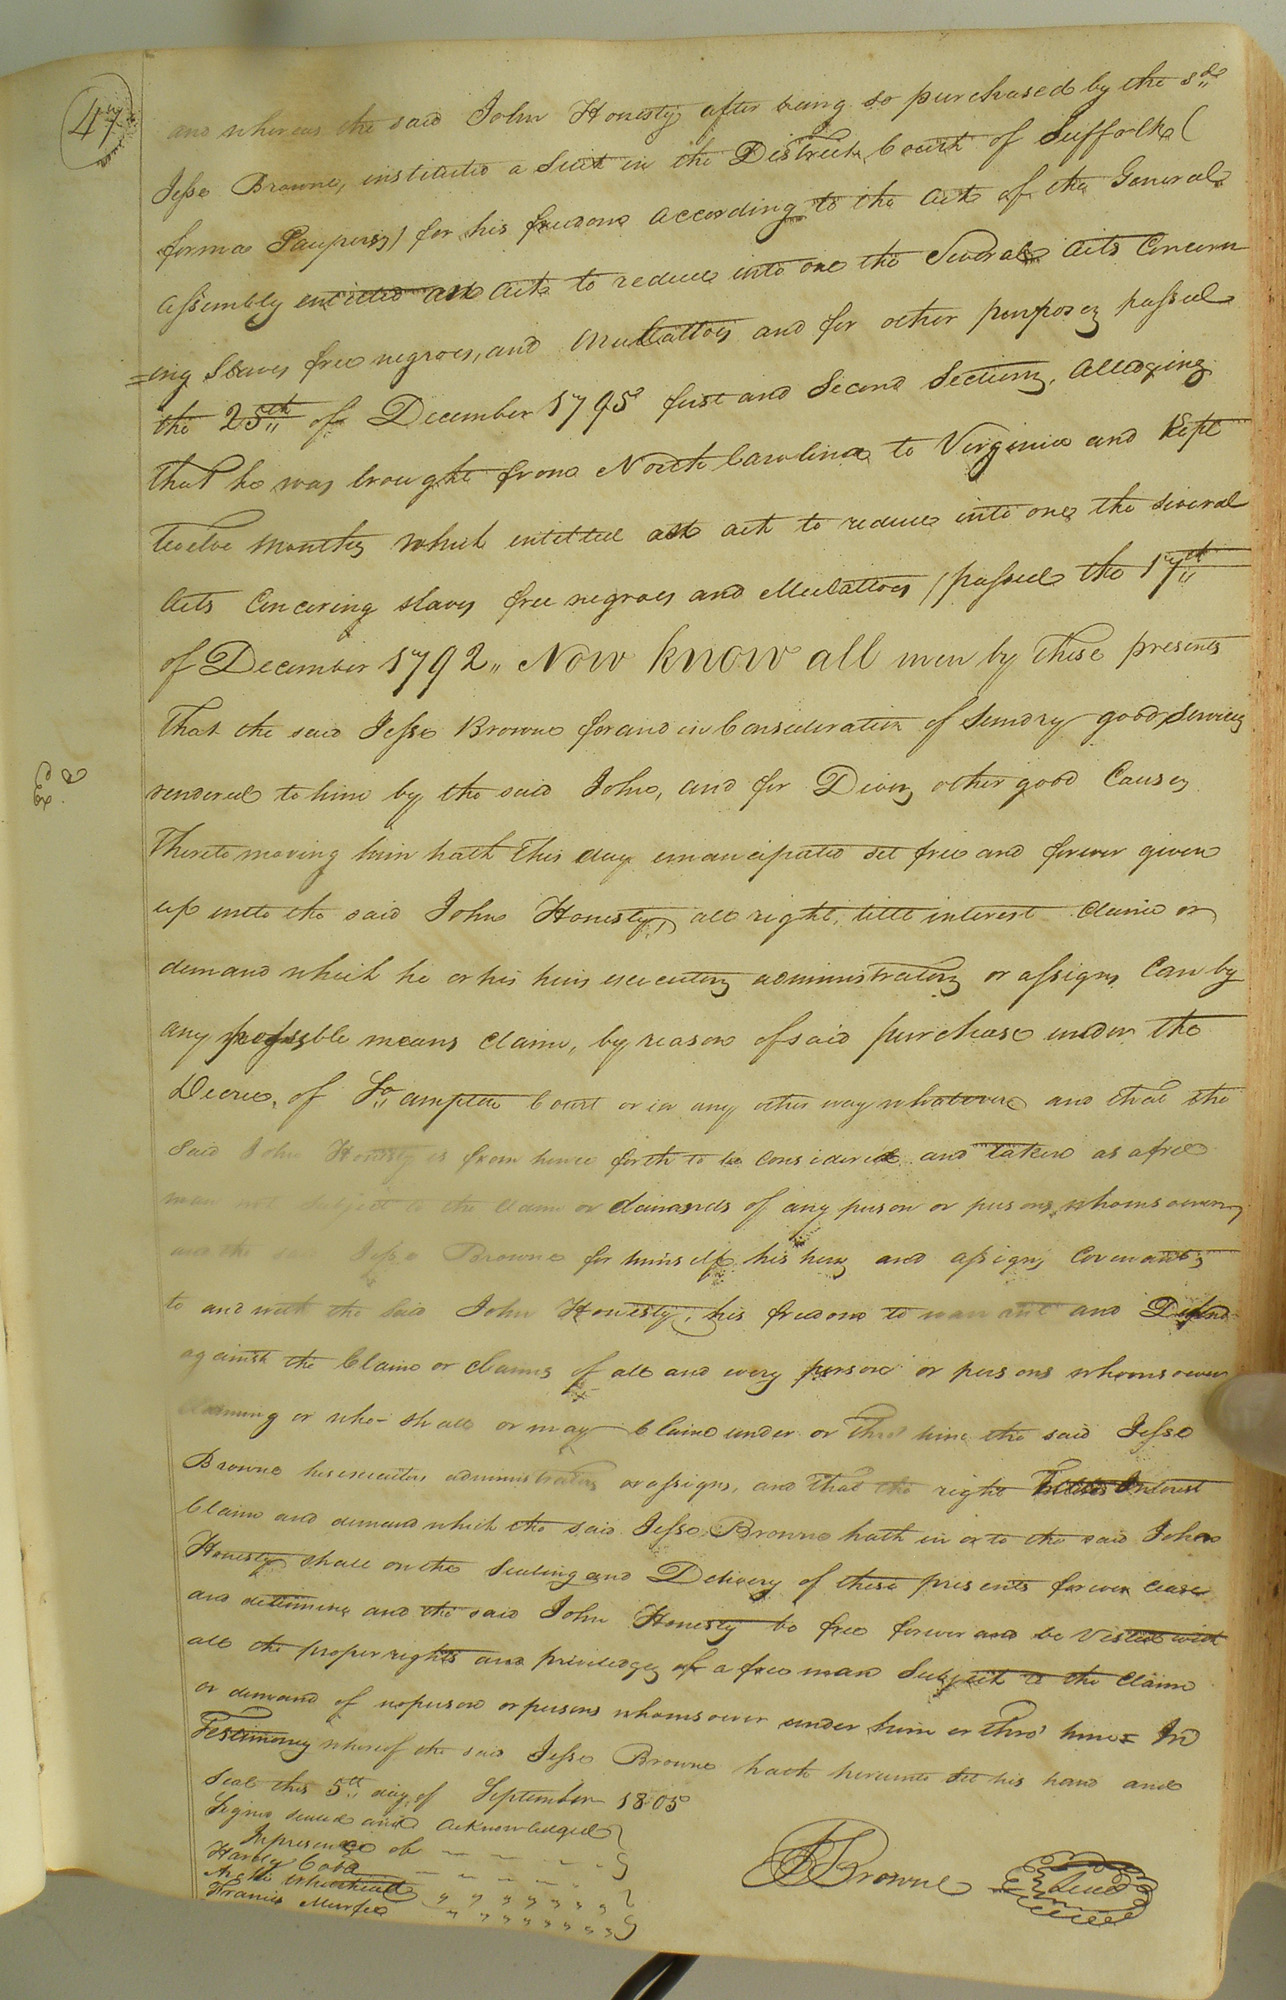 47
and whereas the said John Honesty after being so purchased by the sd.
Jesse Browne, instituted a Suit in the District Court of Suffolk (
forma Pauperis) for his freedom according to the Act of the General
Assembly entitled an act to reduce into one the Several Acts Concern
=ing Slaves free negroes, and Mulattoes and for other purposes passed
the 25th of December 1795 first and Second Sections, Alledging
that he was brought from North Carolina to Virginia and kept
twelve Months which entitled an act to reduce into one the several
Acts Concering slaves free negroes and Mulattoes / passed the 17th
of December 1792 " Now know all men by these presents
that the said Jesse Browne for and in Consideration of Sundry good Services
rendered to him by the said John, and for Divers other good Causes
thereto moving him hath this day emancipated set free and forever given
up unto the said John Honesty, all right, title interest Claim or
demand which he or his heirs executors administrators or assigns Can by
any possible means Claim, by reason of said purchase under the
Decree, of So.ampton Court or in any other way whatever and that the
Said John Honesty is from hence forth to be Considered and taken as a free
man not Subject to the Claim or demands of any person or persons whomsoever,
and the said Jesse Browne for himself his heirs and assigns Covenants
to and with the Said John Honesty, his freedom to warrant and Defend
against the Claim or Claims of all and every person or persons whomsoever
claiming or who shall or may Claim under or thro' him the said Jesse
Browne his executors administrators or assigns, and that the right Interest
Claim and demand which the said Jesse Browne hath in or to the said John
Honesty shall on the Sealing and Delivery of these presents forever cease
and determine and the said John Honesty be free forever and be Vested with
all the proper rights and priviledges of a free man Subject to the Claim
or demand of no person or persons whomsoever under him or thro' him = In
Testimony whereof the said Jesse Browne hath hereunto set his hand and
Seal this 5th day of September 1805
Signed sealed and acknowledged
In presence of
Hardy Cobb
Whitehead
Francis Murfee
J Browne Seal